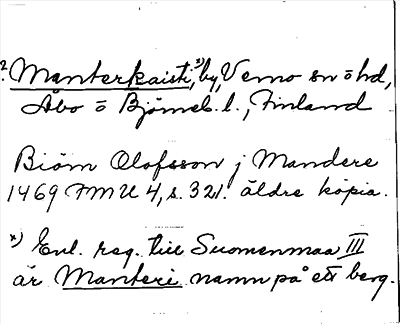 ? Manterkaisti,*) by, Vemo sn ö hd,
Åbo o Björneb. l., Finland
Biörn Olofsson j Mandere
1469 FMU 4, s. 321. äldre kopia.
*) Enl. reg. till Suomenmaa III
är Manteri namn på ett berg.